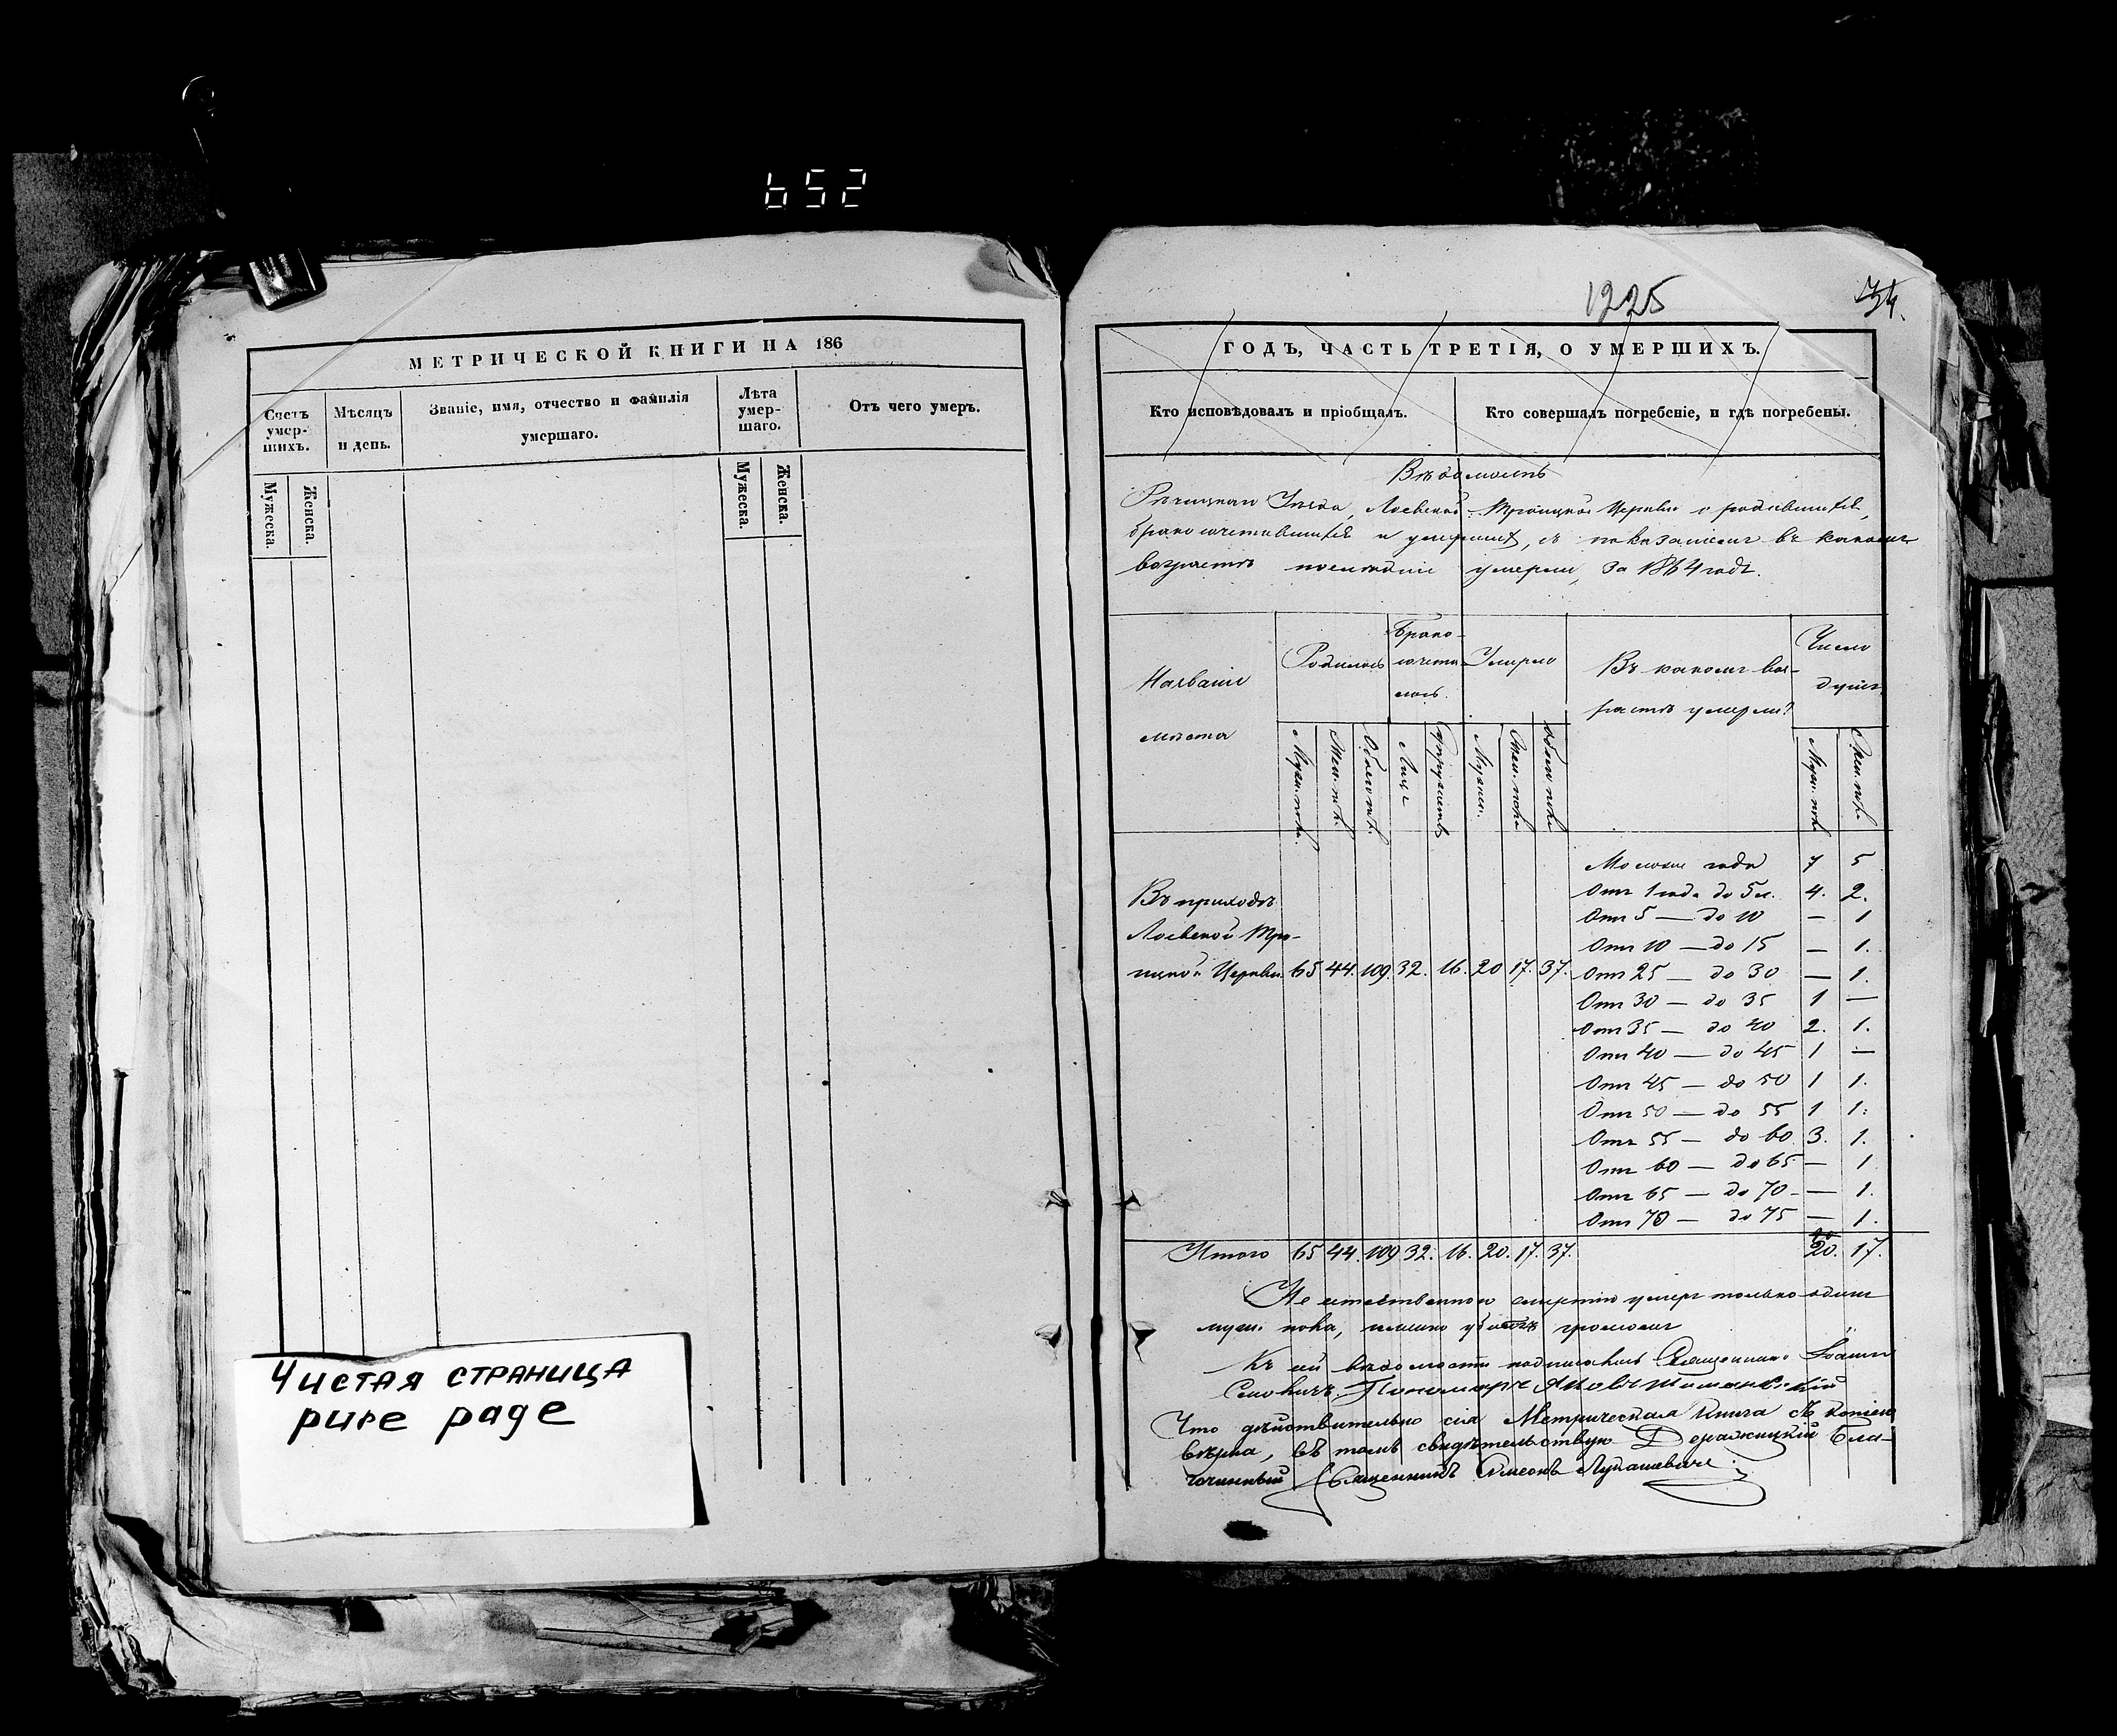 652
МЕТРИЧЕСКОЙ КНИГИ НА 186
Счетъ умер-шихъ.
Мѣсяцъ и день.
Званіе, имя, отчество и фамилія умершаго.
Лѣта умер-шаго.
Отъ чего умеръ.
Мужеска.
Женска.
Мужеска.
Женска.
Чистая страница
pure page
1225
ГОДЪ, ЧАСТЬ ТРЕТІЯ, О УМЕРШИХЪ.
Кто исповѣдовалъ и пріобщалъ.
Кто совершалъ погребеніе, и гдѣ погребены.
Вѣдомость
Рѣчицкаго Уѣзда, Лоевской Троицкой Церкви о родившихся,
бракосочетавшихся и умершихъ, съ показаніемъ въ какомъ
возрастѣ послѣдніе умерли, за 1864 годъ.
Названіе мѣста
Родилось
Брако-сочета-лось.
Умерло
Въ какомъ воз-растѣ умерли?
Число душъ
Муж. пола.
Жен. пол.
Обоего пол.
Лицъ
Супружествъ
Мужск.
Жен. пола
Обоего пола
Муж. пол.
Жен. пол.
Моложе года 7 5
Отъ 1 года до 5 л. 4. 2.
Отъ 5 — до 10 — 1
Отъ 10 — до 15 — 1.
Отъ 25 — до 30 — 1.
Отъ 30 — до 35 1 —
Отъ 35 — до 40 2. 1.
Отъ 40 — до 45 1 —
Отъ 45 — до 50 1 1.
Отъ 50 — до 55 1 1.
Отъ 55 — до 60 3. 1.
Отъ 60 — до 65 — 1
Отъ 65 — до 70 — 1.
Отъ 70 — до 75 — 1.
Въ приходѣ
Лоевской Тро-
ицкой Церкви 65 44. 109. 32. 16. 20 17. 37.
Итого 65 44. 109 32. 16. 20. 17. 37. 20. 17.
Не естественною смертію умеръ только одинъ
муж. пола, именно убитъ громомъ
Къ сей вѣдомости подписались Священникъ Іоаннъ
Пономарь Яковъ
Что дѣйствительно сія Метрическая Книга съ копіею
вѣрна, въ томъ свидѣтельствую Деражицкій Бла-
гочинный Священникъ Симеонъ Лукашевичъ